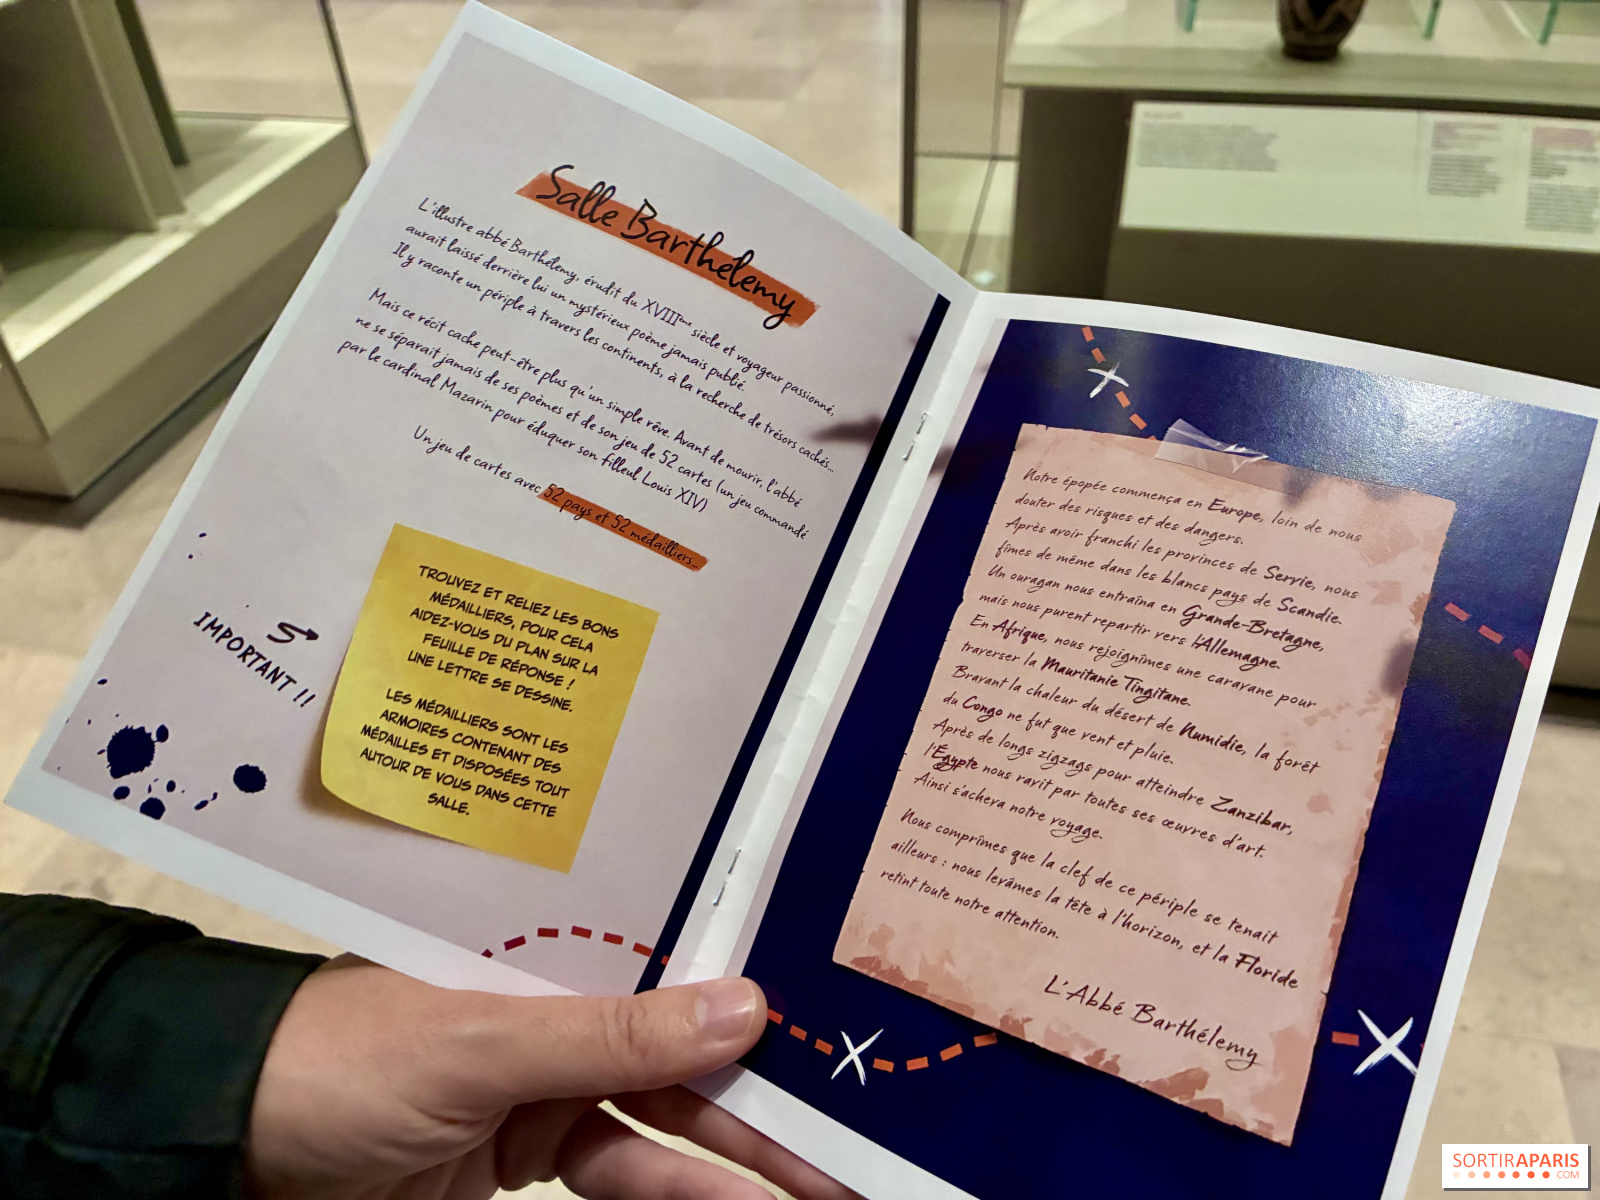 Salle Barthélemy
L'illustre abbé Barthélemy, érudit du XVIIIème siècle et voyageur passionné,
aurait laissé derrière lui un mystérieux poème jamais publié.
Il y raconte un périple à travers les continents, à la recherche de trésors cachés...
Mais ce récit cache peut-être plus qu'un simple rêve. Avant de mourir, l'abbé
ne se séparait jamais de ses poèmes et de son jeu de 52 cartes (un jeu commandé
par le cardinal Mazarin pour éduquer son filleul Louis XIV)
Un jeu de cartes avec 52 pays et 52 médailliers...
IMPORTANT !!
TROUVEZ ET RELIEZ LES BONS
MÉDAILLIERS, POUR CELA
AIDEZ-VOUS DU PLAN SUR LA
FEUILLE DE RÉPONSE !
UNE LETTRE SE DESSINE.
LES MÉDAILLIERS SONT LES
ARMOIRES CONTENANT DES
MÉDAILLES ET DISPOSÉES TOUT
AUTOUR DE VOUS DANS CETTE
SALLE.
Notre épopée commença en Europe, loin de nous
douter des risques et des dangers.
Après avoir franchi les provinces de Servie, nous
fîmes de même dans les blancs pays de Scandie.
Un ouragan nous entraîna en Grande-Bretagne,
mais nous purent repartir vers l'Allemagne.
En Afrique, nous rejoignîmes une caravane pour
traverser la Mauritanie Tingitane.
Bravant la chaleur du désert de Numidie, la forêt
du Congo ne fut que vent et pluie.
Après de longs zigzags pour atteindre Zanzibar,
l'Egypte nous ravit par toutes ses œuvres d'art.
Ainsi s'acheva notre voyage.
Nous comprîmes que la clef de ce périple se tenait
ailleurs : nous levâmes la tête à l'horizon, et la Floride
retint toute notre attention.
L'Abbé Barthélemy
SORTIRAPARIS
.COM